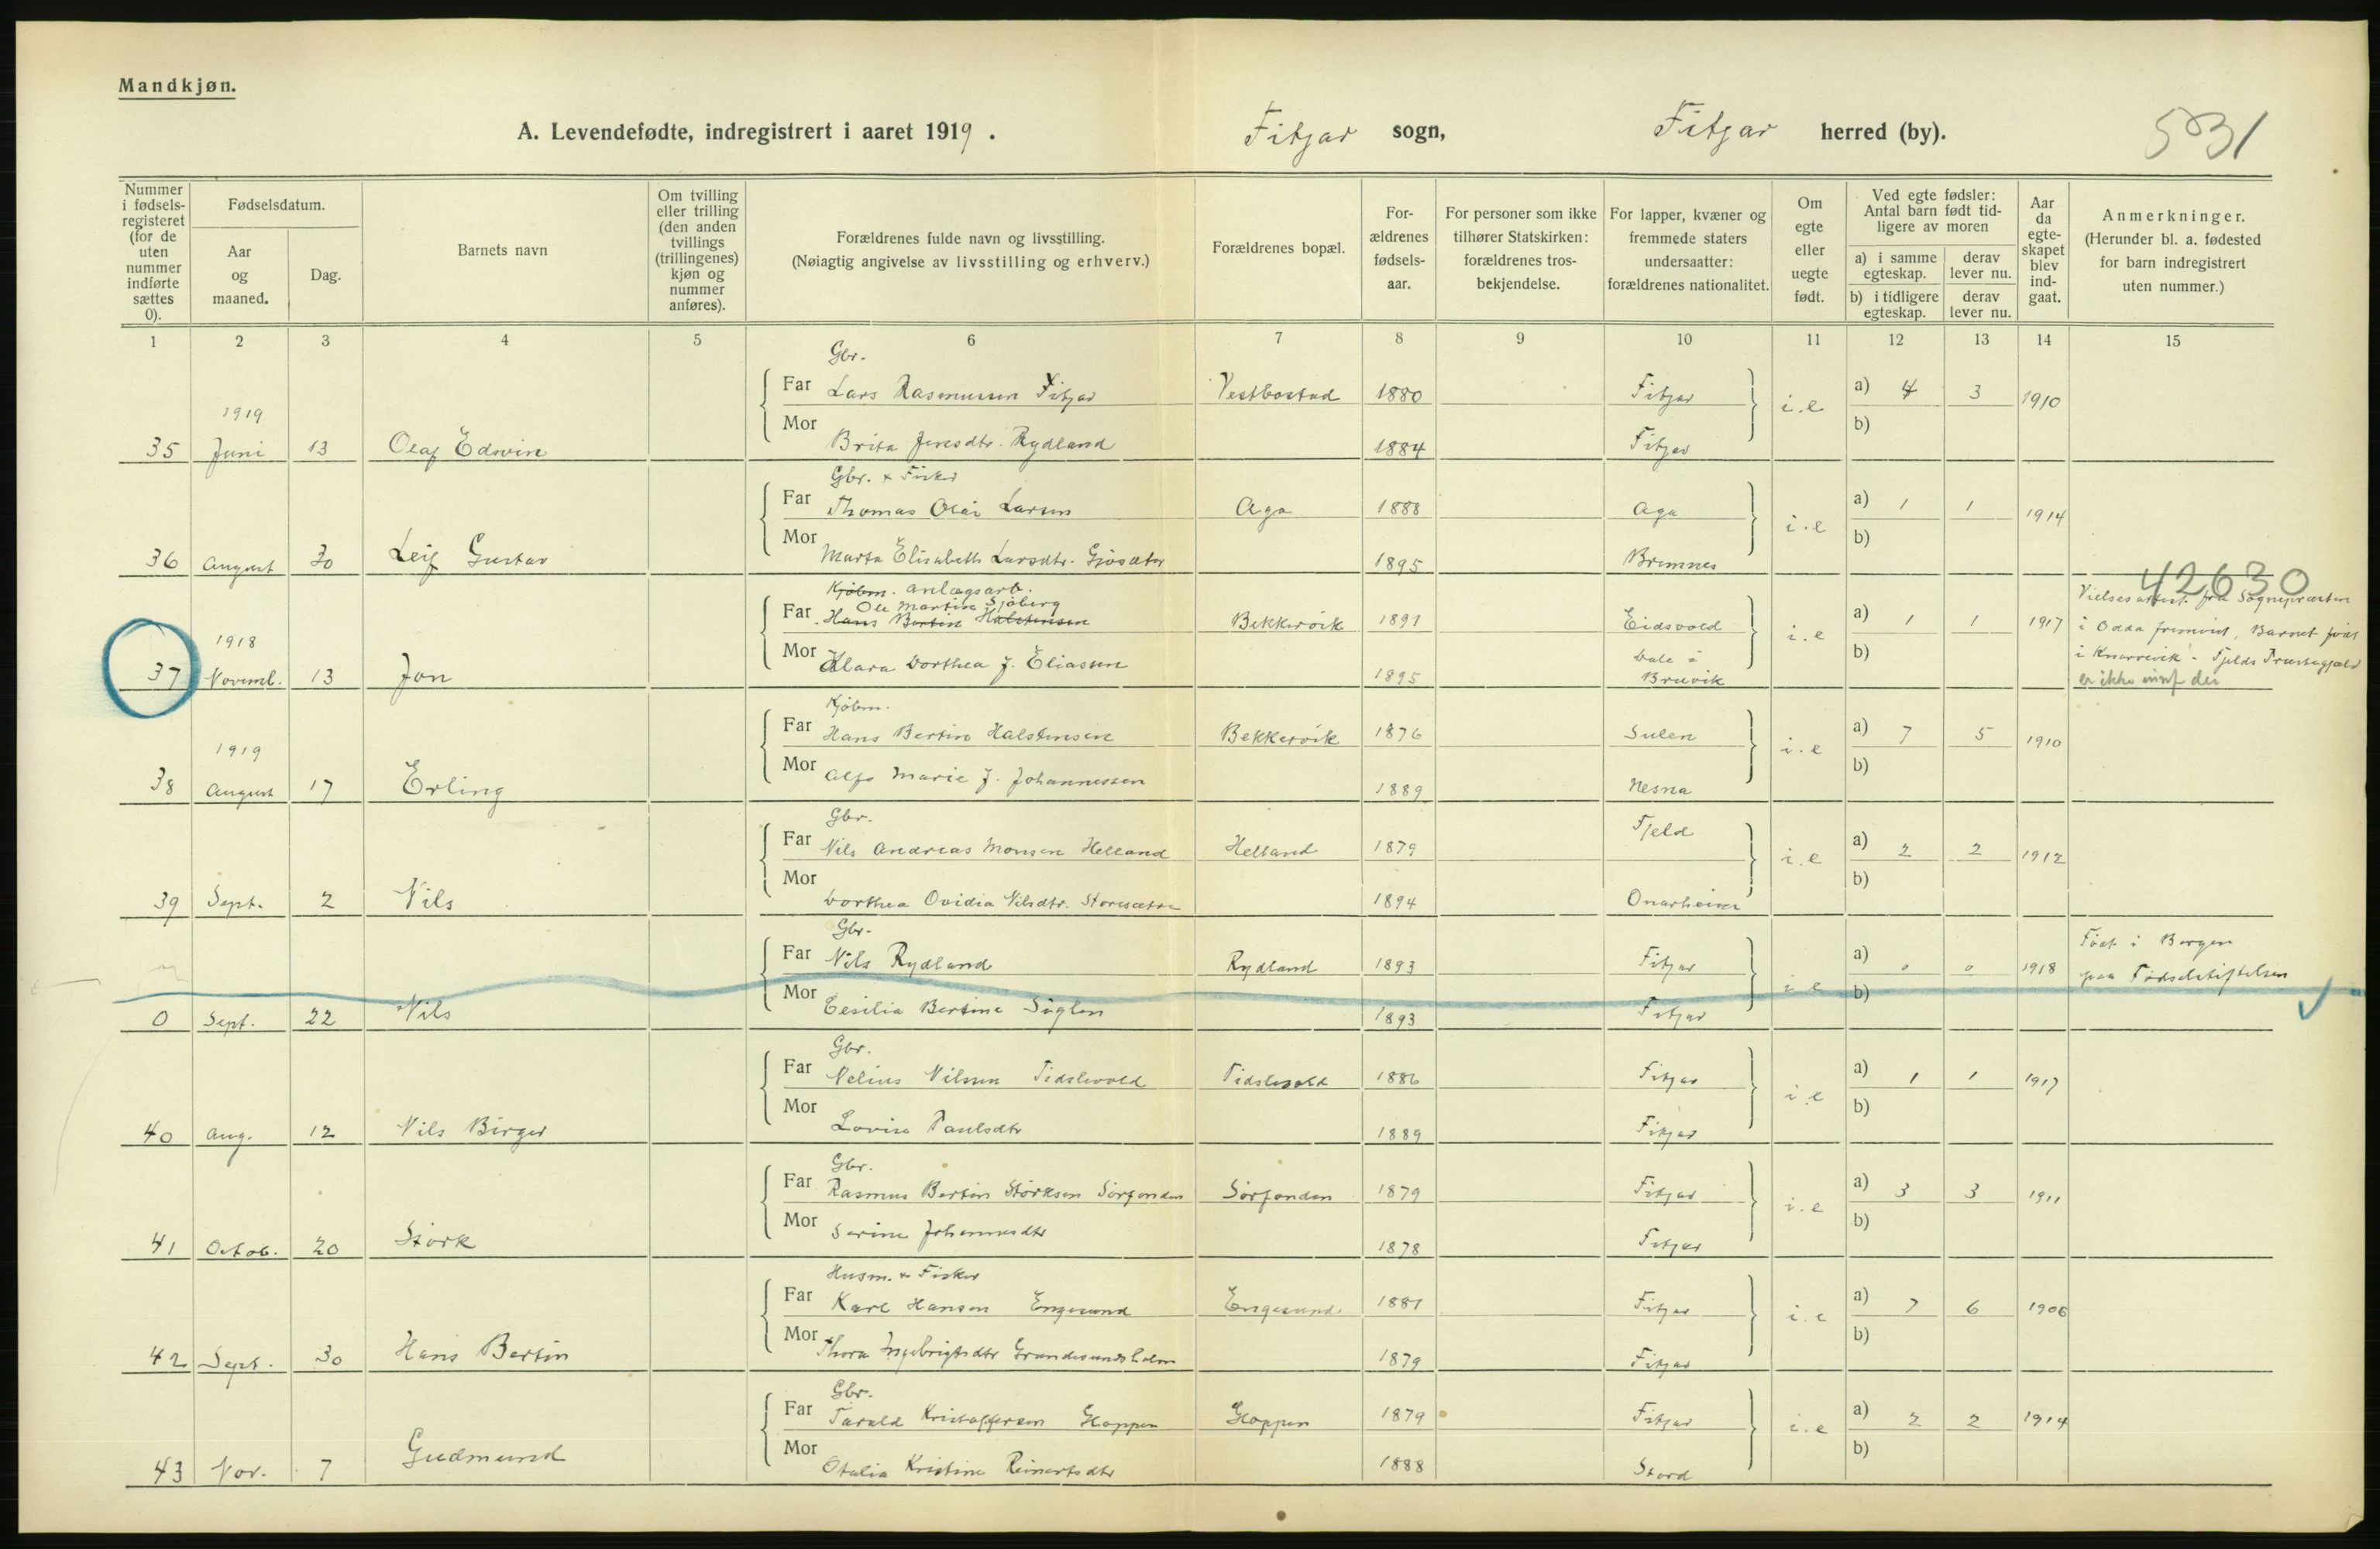 Mandkjøn.
A. Levendefødte, indregistrert i aaret 1919. Fitjar sogn, Fitjar herred (by). 531
Nummer i fødselsregisteret (for de uten nummer indførte sættes 0).
Fødselsdatum.
Aar og maaned.
Dag.
Barnets navn
Om tvilling eller trilling (den anden tvillings (trillingenes) kjøn og nummer anføres).
Forældrenes fulde navn og livsstilling.
(Nøiagtig angivelse av livsstilling og erhverv.)
Forældrenes bopæl.
Forældrenes fødselsaar.
For personer som ikke tilhører Statskirken: forældrenes trosbekjendelse.
For lapper, kvæner og fremmede staters undersaatter: forældrenes nationalitet.
Om egte eller uegte født.
Ved egte fødsler: Antal barn født tidligere av moren
a) i samme egteskap. derav lever nu.
b) i tidligere egteskap. derav lever nu.
Aar da egteskapet blev indgaat.
Anmerkninger.
(Herunder bl. a. fødested for barn indregistrert uten nummer.)
1 2 3 4 5 6 7 8 9 10 11 12 13 14 15
Gbr.
Far Lars Rasmussen Fitjar Vestbostad 1880 Fitjar i.e a) 4 3 1910
1919
Mor Brita Jensdtr. Rydland 1884 Fitjar b)
35 Juni 13 Olaf Edvin
Gbr. & Fisker
Far Thomas Olai Larsen Aga 1888 Aga i.e a) 1 1 1914
Mor Marta Elisabeth Larsdtr. 1895 Bremnes b)
36 August 30 Leif Gustav
42630
Kjøbm. anlægsarb.
Ole Martin Sjøberg
Far Hans Bertin Halstensen Bekkervik 1891 Eidsvold i.e a) 1 1 1917
1918
Mor Klara Dorthea J. Eliassen 1895 Dale i Bruvik b)
37 Novemb. 13 Jon
Vielsesattest fra Sognepræsten
i Odda fremvist, Barnet født
i Knarrevik - Fjelds Præstegjæld
er ikke der
Kjøbm.
Far Hans Bertin Halstensen Bekkervik 1876 Sulen i.e a) 7 5 1910
1919
Mor Marie J. Johannessen 1889 Nesna b)
38 August 17 Erling
Gbr.
Far Nils Andreas Monsen Helland Helland 1879 Fjeld i.e a) 2 2 1912
Mor Dorthea Ovidia Nilsdtr. Storesætre 1894 Onarheim b)
39 Sept. 2 Nils
Gbr.
Far Nils Rydland Rydland 1893 Fitjar i.e a) 0 0 1918 Født i Bergen
paa Fødselstiftelsen
Mor Cesilia Bertine 1893 Fitjar b)
0 Sept. 22 Nils
Gbr.
Far Nelius Nilsen Tislevold Tidslevold 1886 Fitjar i.e a) 1 1 1917
Mor Lovise Paulsdtr 1889 Fitjar b)
40 Aug. 12 Nils Birger
Gbr.
Far Rasmus Bertin Størksen Sørfonden Sørfonden 1879 Fitjar i.e a) 3 3 1911
Mor Serine Johannesdtr 1878 Fitjar b)
41 Octob. 20 Størk
Husm. & Fisker
Far Karl Hansen Engesund Engesund 1881 Fitjar i.e a) 7 6 1906
Mor Thora Ingebrigtsdtr Grundesundsholm 1879 Fitjar b)
42 Sept. 30 Hans Bertin
Gbr.
Far Tarald Kristoffersen Gloppen Gloppen 1879 Fitjar i.e a) 2 2 1914
Mor Otalia Kristine Reinertsdtr 1888 Stord b)
43 Nov. 7 Gudmund